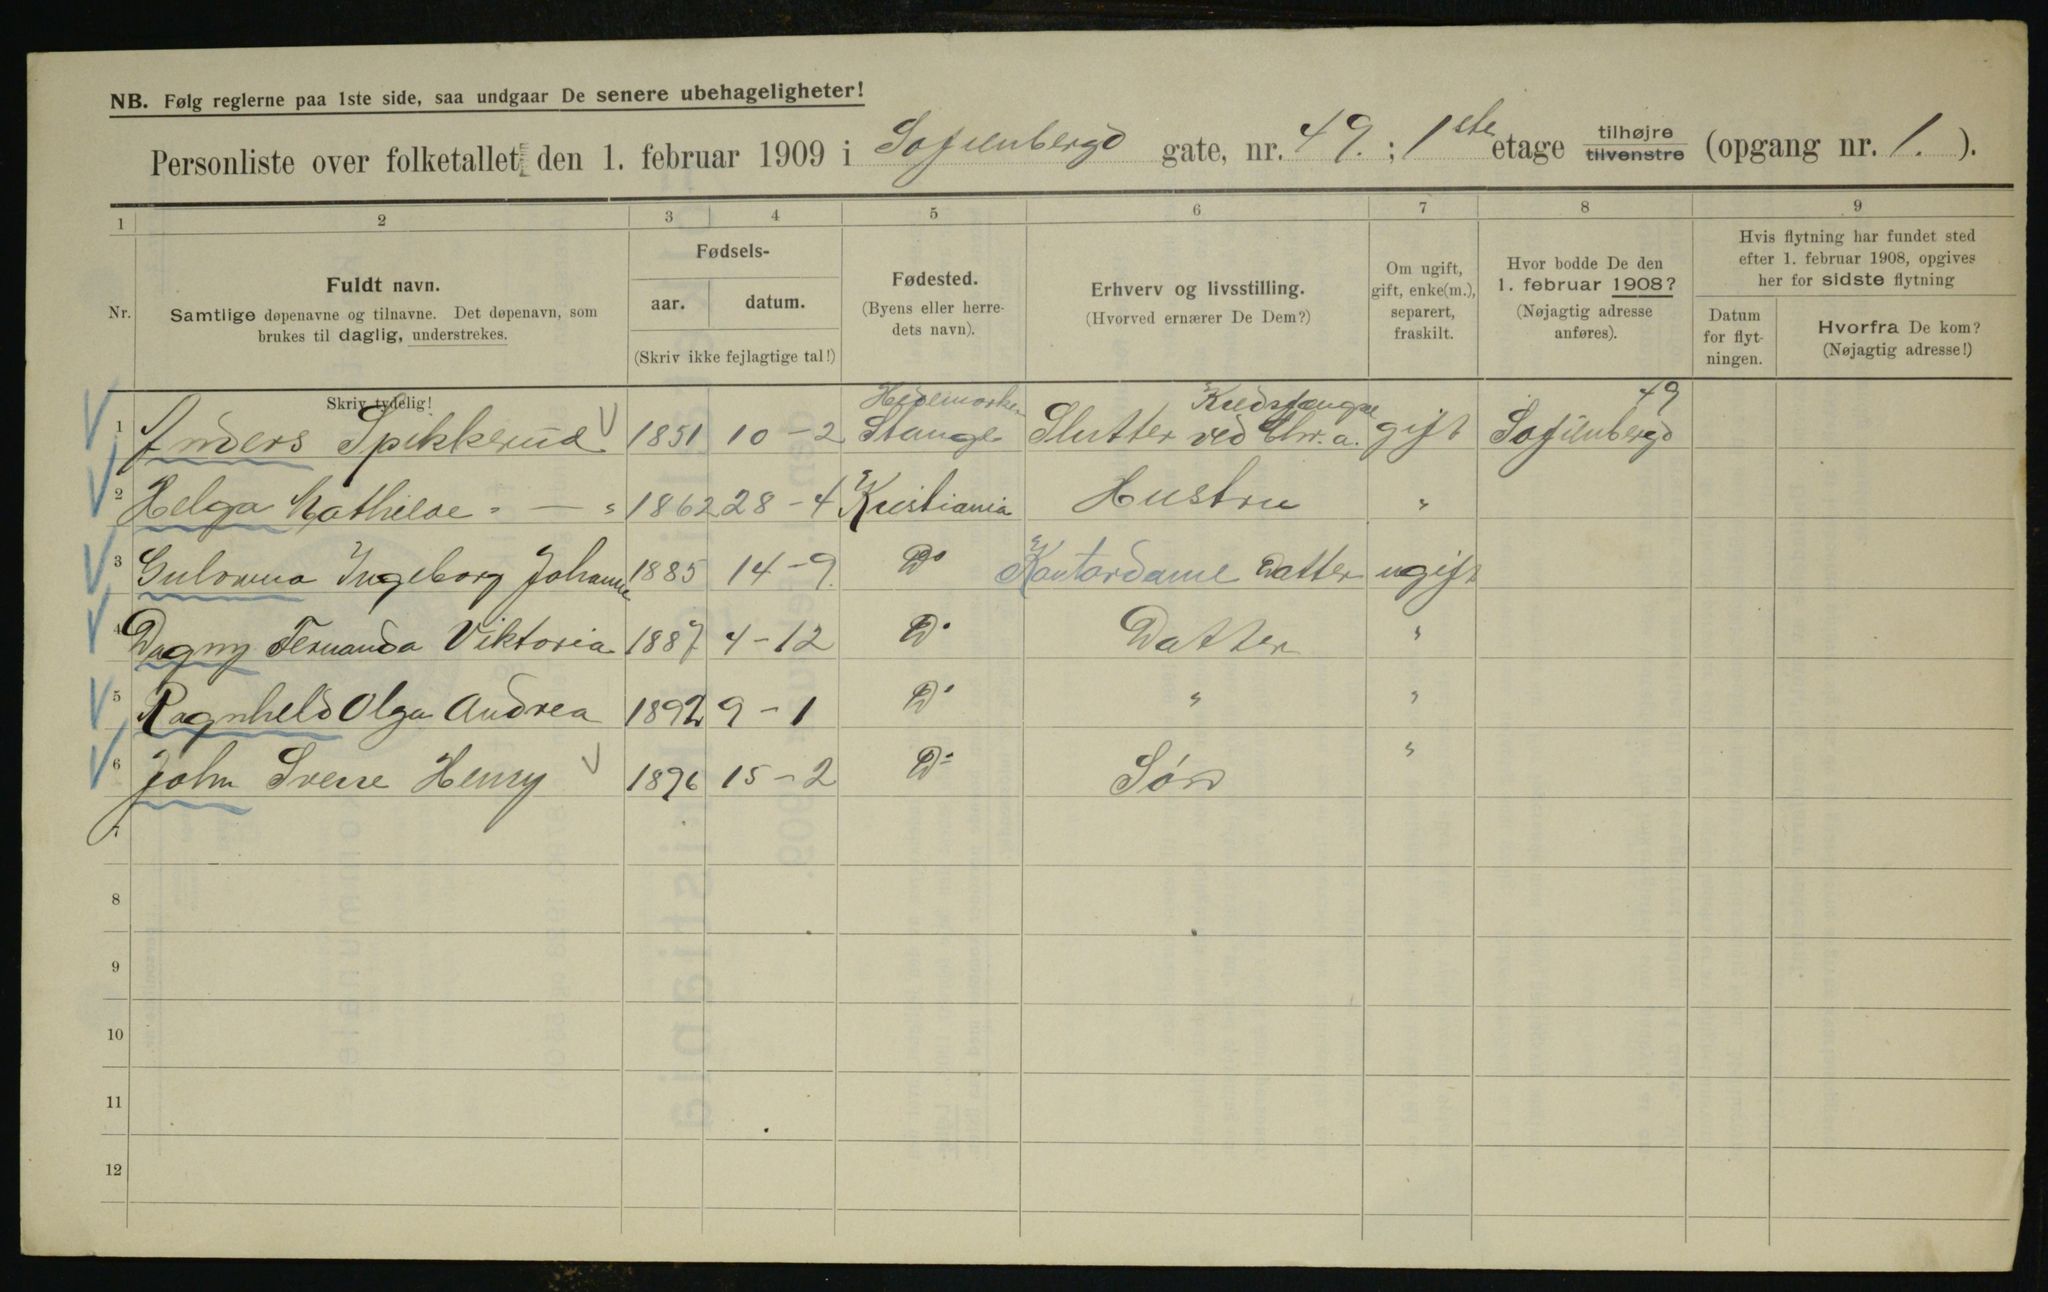 NB. Følg reglerne paa 1ste side, saa undgaar De senere ubehageligheter!
Personliste over folketallet den 1. februar 1909 i Sofienbergd gate, nr. 49. ; 1ste etage tilhøjre tilvenstre (opgang nr. 1. ).
1 2 3 4 5 6 7 8 9
Nr.
Fuldt navn.
Samtlige døpenavne og tilnavne. Det døpenavn, som
brukes til daglig, understrekes.
Skriv tydelig!
Fødsels-
aar. datum.
(Skriv ikke fejlagtige tal!)
Fødested.
(Byens eller herre-
dets navn).
Erhverv og livsstilling.
(Hvorved ernærer De Dem?)
Om ugift,
gift, enke(m.),
separert,
fraskilt.
Hvor bodde De den
1. februar 1908?
(Nøjagtig adresse
anføres).
Hvis flytning har fundet sted
efter 1. februar 1908, opgives
her for sidste flytning
Datum
for flyt-
ningen.
Hvorfra De kom?
(Nøjagtig adresse!)
Hedemarken Kredsfængsel 49
1 Anders Spikkerud 1851 10-2 Stange Slutter ved Chr.a. gift Sofienbergd
2 Helga Mathilde " — " 1862 28-4 Kristiania Hustru "
3 Gulowna Ingeborg Johanne 1885 14-9. Do Kontordame Datter ugift
4 Dagny Fernanda Viktoria 1887 4-12 Do Datter "
5 Ragnhild Olga Andrea 1892 9-1 Do " "
6 John Sverre Henry 1896 15-2 Do Søn "
7
8
9
10
11
12